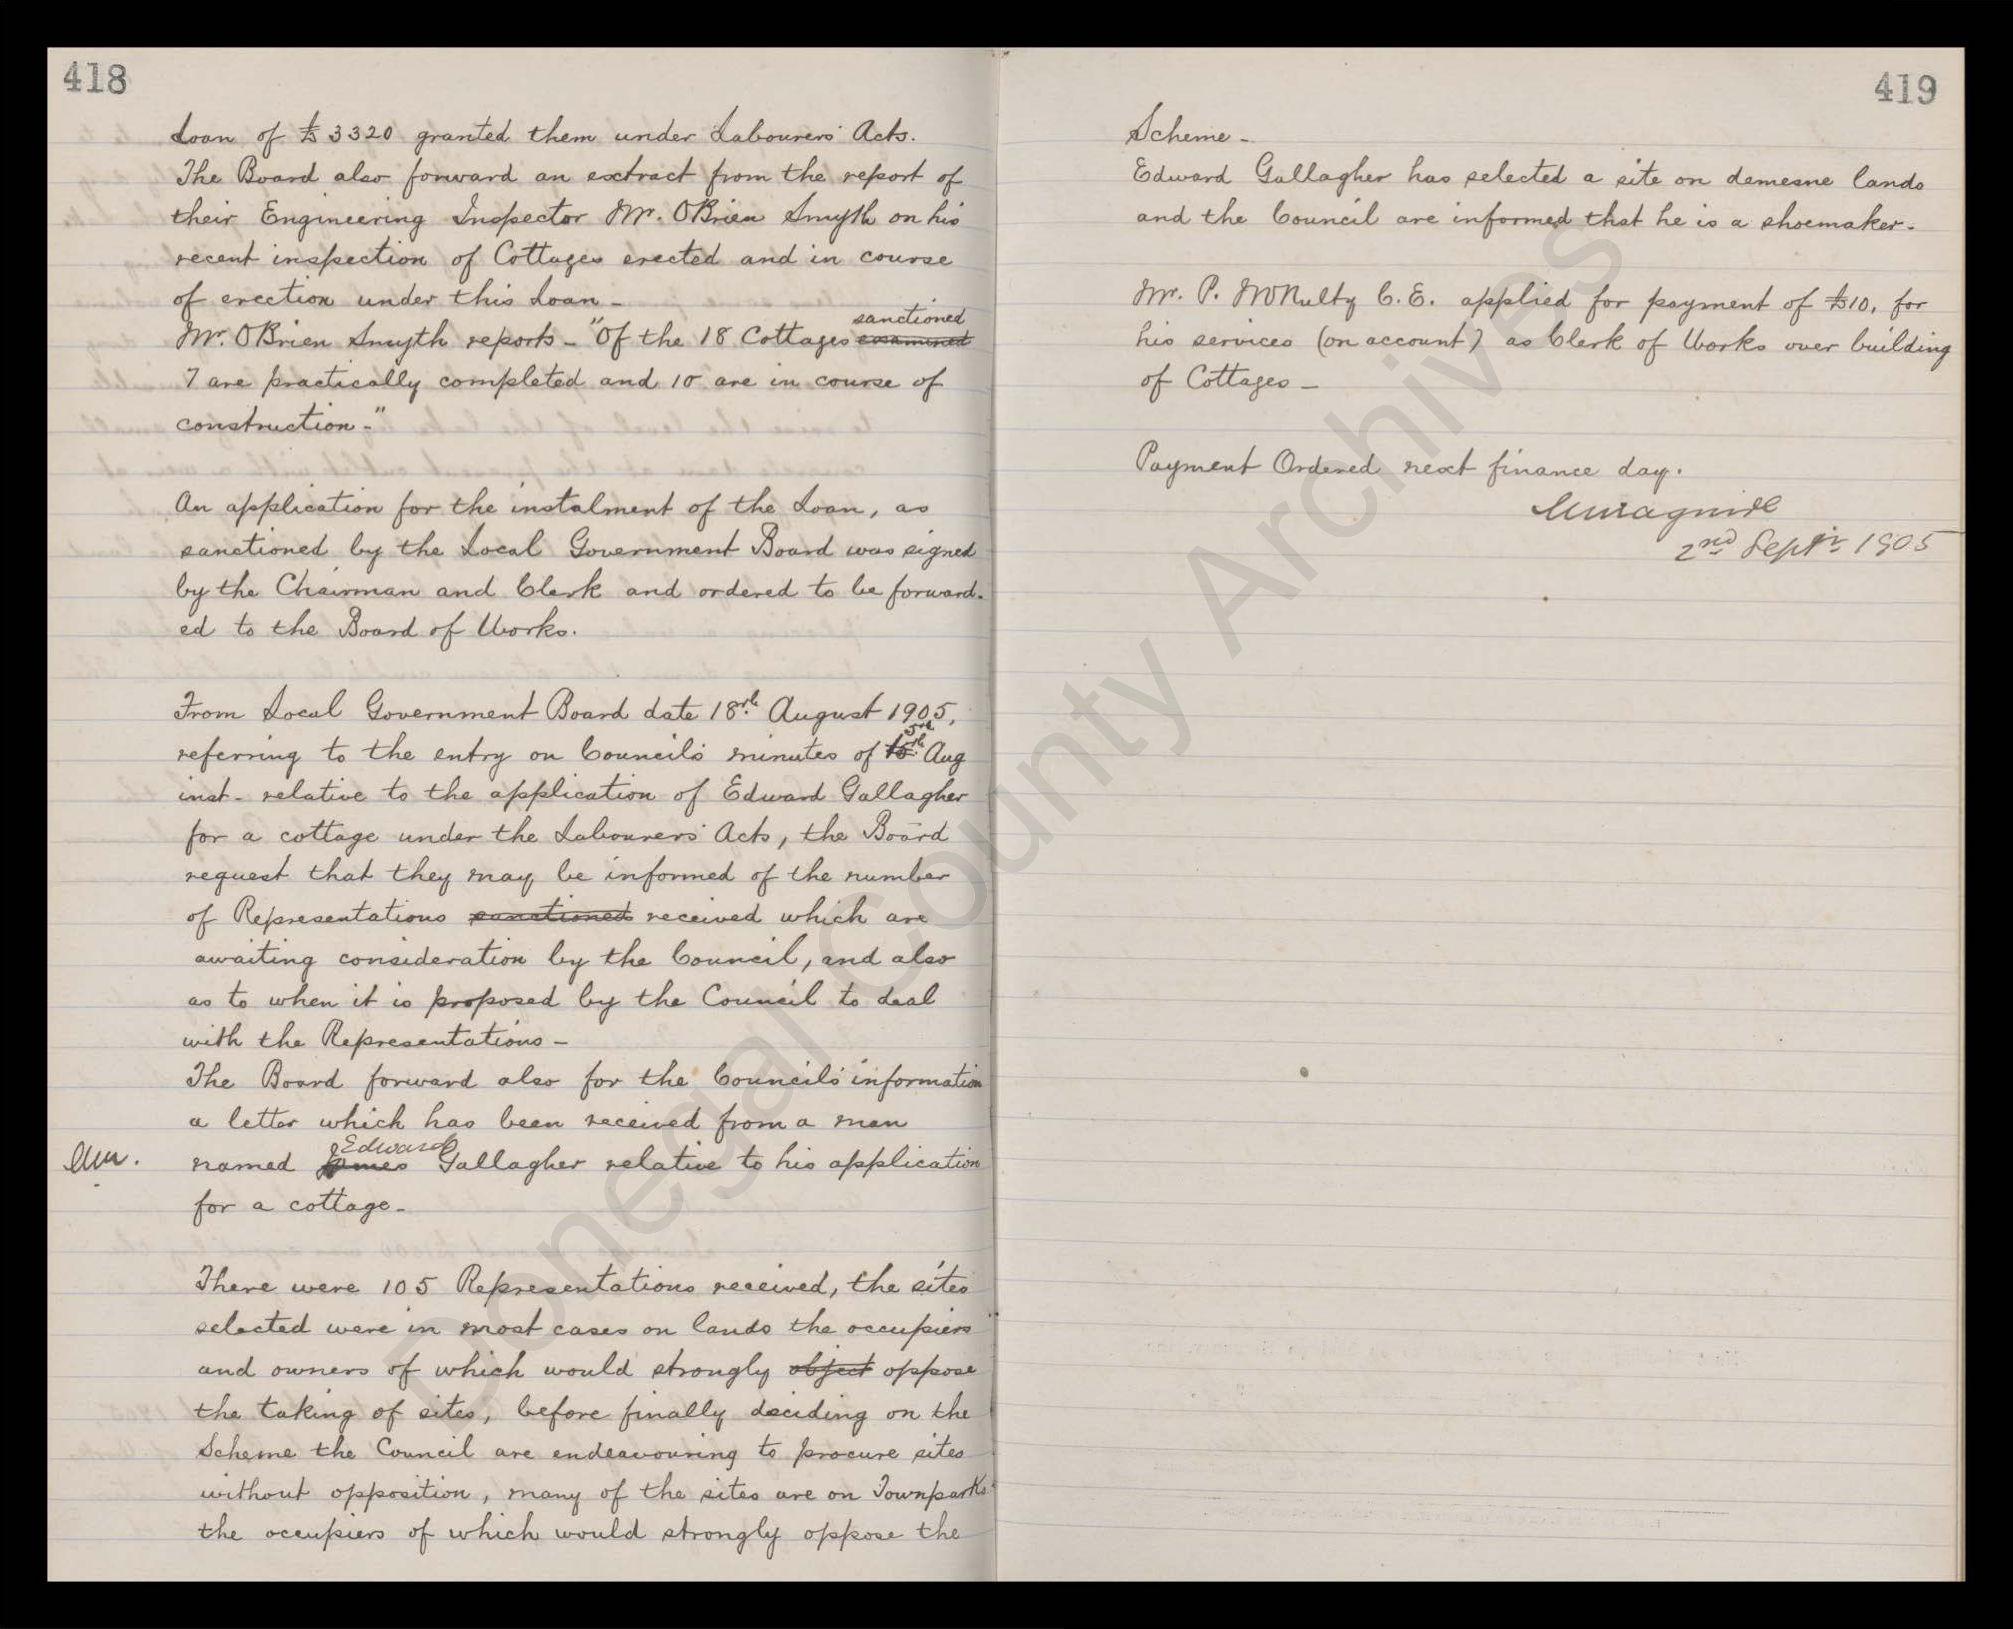 418
Loan of £3320 granted them under Labourers' Acts.
The Board also forward an extract from the report of
their Engineering Inspector Mr. OBrien Smyth on his
recent inspection of Cottages erected and in course
of erection under this Loan –
sanctioned
Mr. OBrien Smyth reports – "Of the 18 Cottages examined
7 are practically completed and 10 are in course of
construction –"
An application for the instalment of the Loan, as
sanctioned by the Local Government Board was signed
by the Chairman and Clerk and ordered to be forward-
ed to the Board of Works.
From Local Government Board date 18th August 1905,
5th
referring to the entry on Council's minutes of 15th Aug
inst – relative to the application of Edward Gallagher
for a cottage under the Labourers' Acts, the Board
request that they may be informed of the number
of Representations sanctioned received which are
awaiting consideration by the Council, and also
as to when it is proposed by the Council to deal
with the Representations –
The Board forward also for the Council's information
a letter which has been received from a man
Edward
named James Gallagher relative to his application
for a cottage –
There were 105 Representations received, the sites
selected were in most cases on lands the occupiers
and owners of which would strongly object oppose
the taking of sites, before finally deciding on the
Scheme the Council are endeavouring to procure sites
without opposition, many of the sites are on Townparks
the occupiers of which would strongly oppose the
419
Scheme –
Edward Gallagher has selected a site on demesne lands
and the Council are informed that he is a shoemaker –
Mr. P. McNulty C.E. applied for payment of £10, for
his services (on account) as Clerk of Works over building
of Cottages –
Payment Ordered next finance day.
2nd Septr 1905
Donegal County Archives